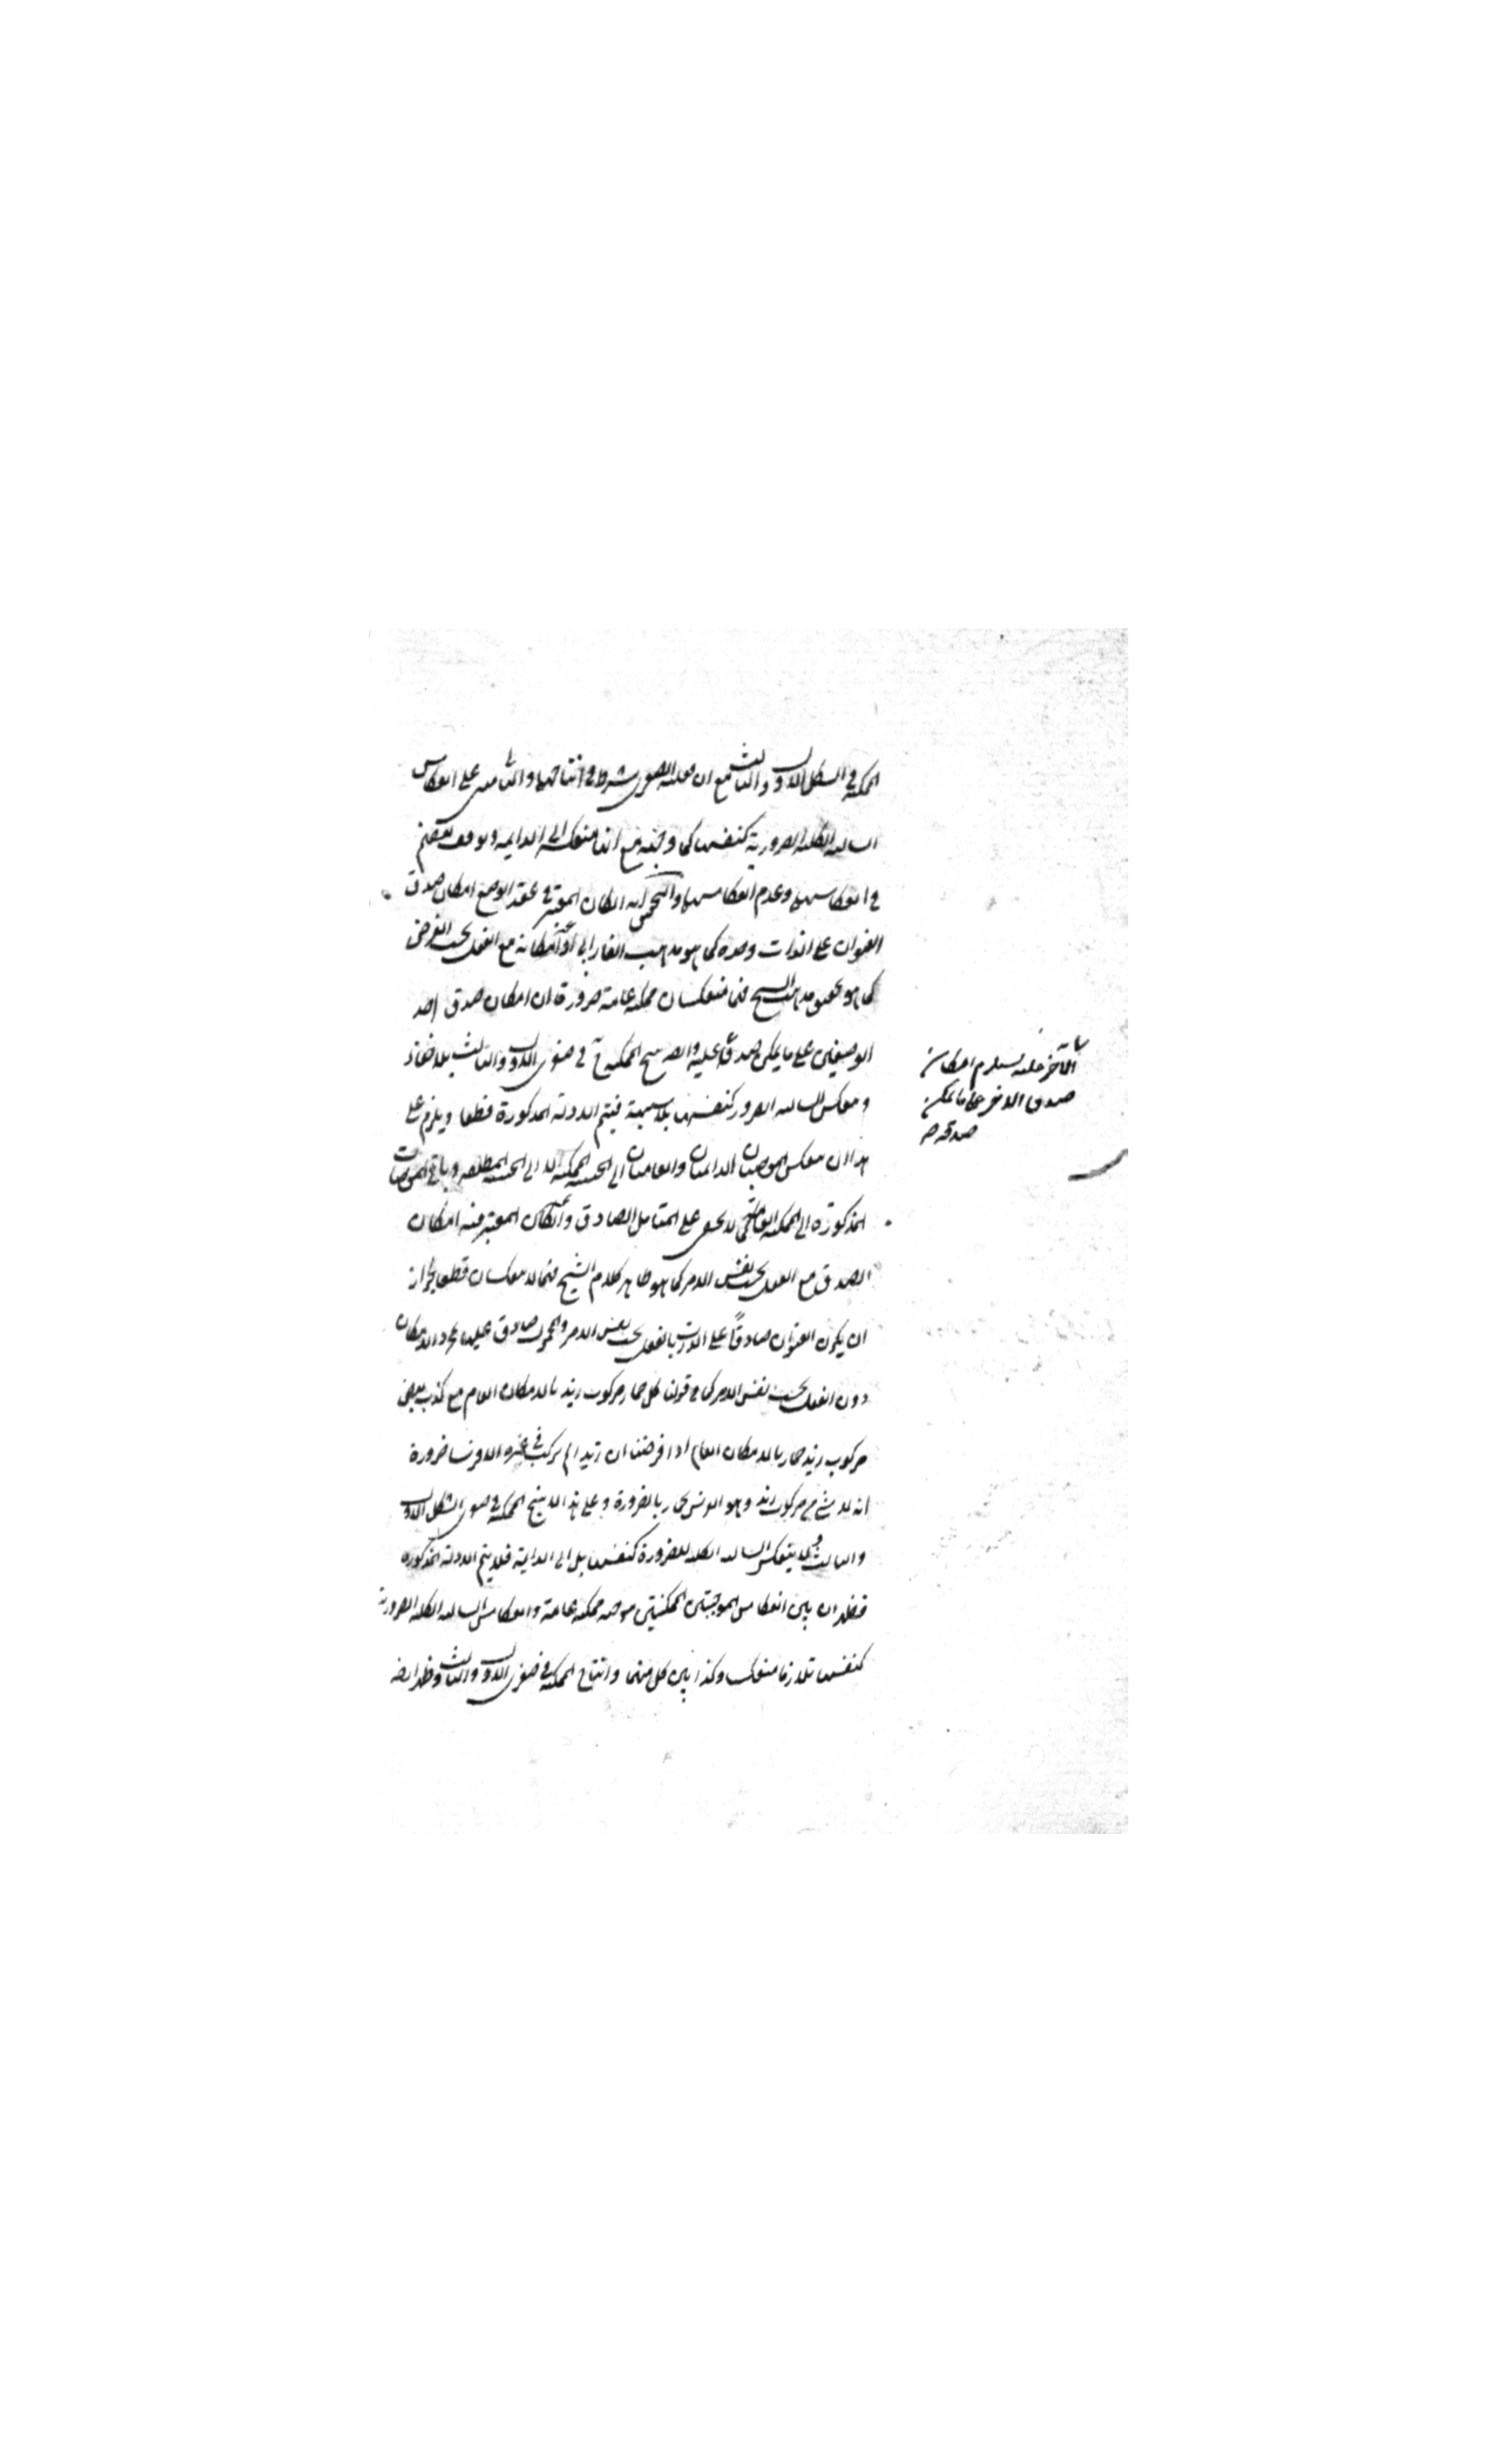 الممكنة في الشكل الاول والثالث مع ان فعلية الصغرى شرط في انتاجهما والثاني على انعكاس
السالبة الكلية الضرورية كنفسها كما وجهة مع انها منعكسة الى الدايمة وتوقف بعضهم
في انعكاسهما وعدم انعكاسهما والتحقيق انه ان كان المعتبر في عقد الوضع امكان صدق
العنوان على الذات وحده كما هو مذهب الفارابي او امكانه مع الفعل بحسب الفرض
كما هو تحقيق مذهب الشيخ فهما تنعكسان ممكنة عامة ضرورة ان امكان صدق احد
الوصفين على ما يمكن صدق عليه والصريح الممكنة ح في صغرى الاول والثالث بلا خفاء
وتعكس السالبة الضرورية كنفسها بلا شبهة فيتم الادلة المذكورة قطعا ويلزم على
هذا ان تعكس الموجبتان الدائمتان والعامتان الى الحينية الممكنة لا الى الحينية المطلقة وباقي الموجبات
المذكورة الى الممكنة العامة كما لا يخفى على المتأمل الصادق وان كان المعتبر فيه امكان
الصدق مع الفعل بحسب نفس الامر كما هو ظاهر كلام الشيخ فهما لا تنعكسان قطعا لجواز
ان يكون العنوان صادقاً على الذات بالفعل بحسب نفس الامر والمحمول صادق عليها بمجرد الامكان
دون الفعل بحسب نفس الامر كما في قولنا كل حمار مركوب زيد بالامكان العام مع كذب بعض
مركوب زيد حمار بالامكان العام اذا فرضنا ان زيدا لم يركب في عمره الا فرسا ضرورة
انه لا شيء من مركوب زيد وهو الفرس بحمار بالضرورة وعلى هذا لا ينتج الممكنة في صغرى الشكل الاول
والثالث ولا ينعكس السالبة الكلية الضرورة كنفسها بل الى الدايمة فلا يتم الادلة المذكورة
فظهر ان بين انعكاس الموجبتين الممكنتين موجبة ممكنة عامة وانعكاس السالبة الكلية الضرورية
كنفسها تلازما منعكسا وكذا بين كل منهما وانتاج الممكنة في صغرى الاول والثالث وظهر ايضا
الآخر عليه يستلزم امكان
صدق الاخر على ما يمكن
صدقه